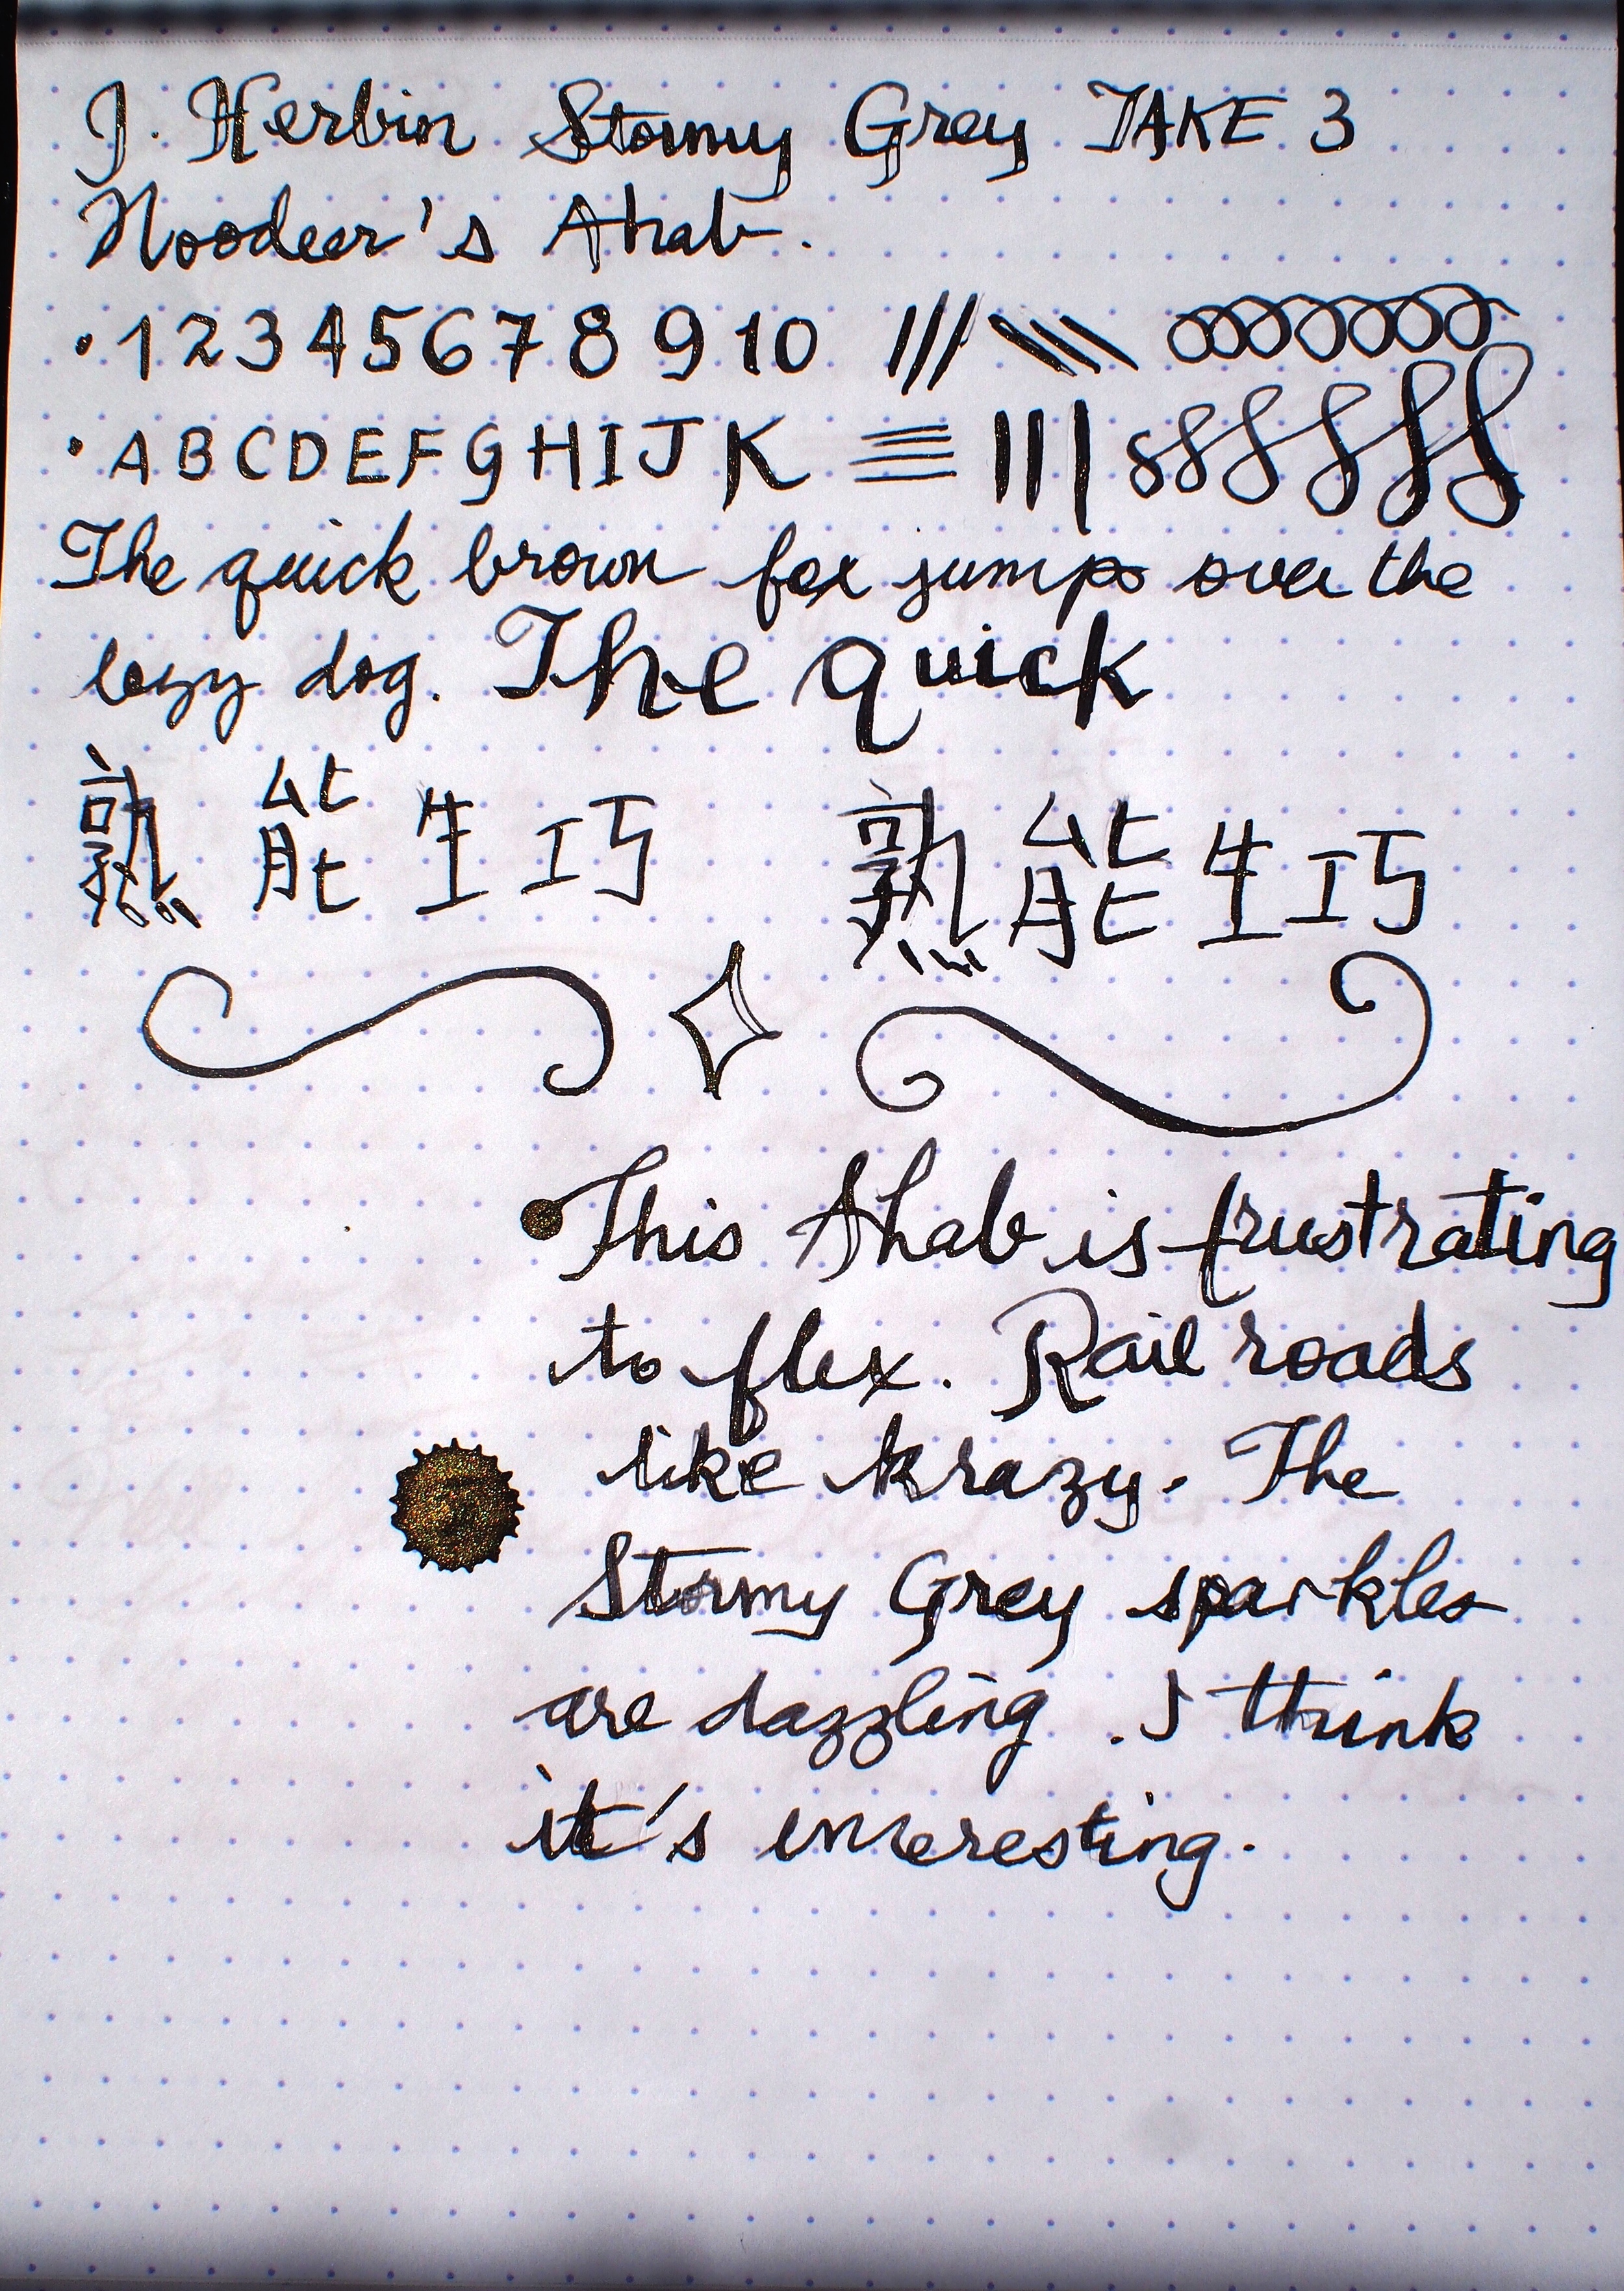 J. Herbin Stormy Grey TAKE 3
Noodeer's Ahab.
• 1 2 3 4 5 6 7 8 9 10
• A B C D E F G H I J K
The quick brown fox jumps over the
lazy dog. The quick
熟能生巧 熟能生巧
This Ahab is frustrating
to flex. Rail roads
like krazy. The
Stormy Grey sparkles
are dazzling. I think
it's interesting.